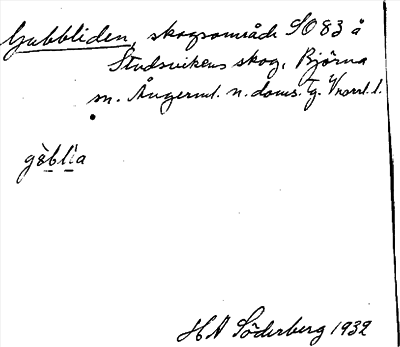 Gubbliden, skogsområde SO 83 å
Studsvikens skog, Björna
sn. Ångerml. n. doms. g. V norrl. l.
gèblìa
H A Söderberg 1932